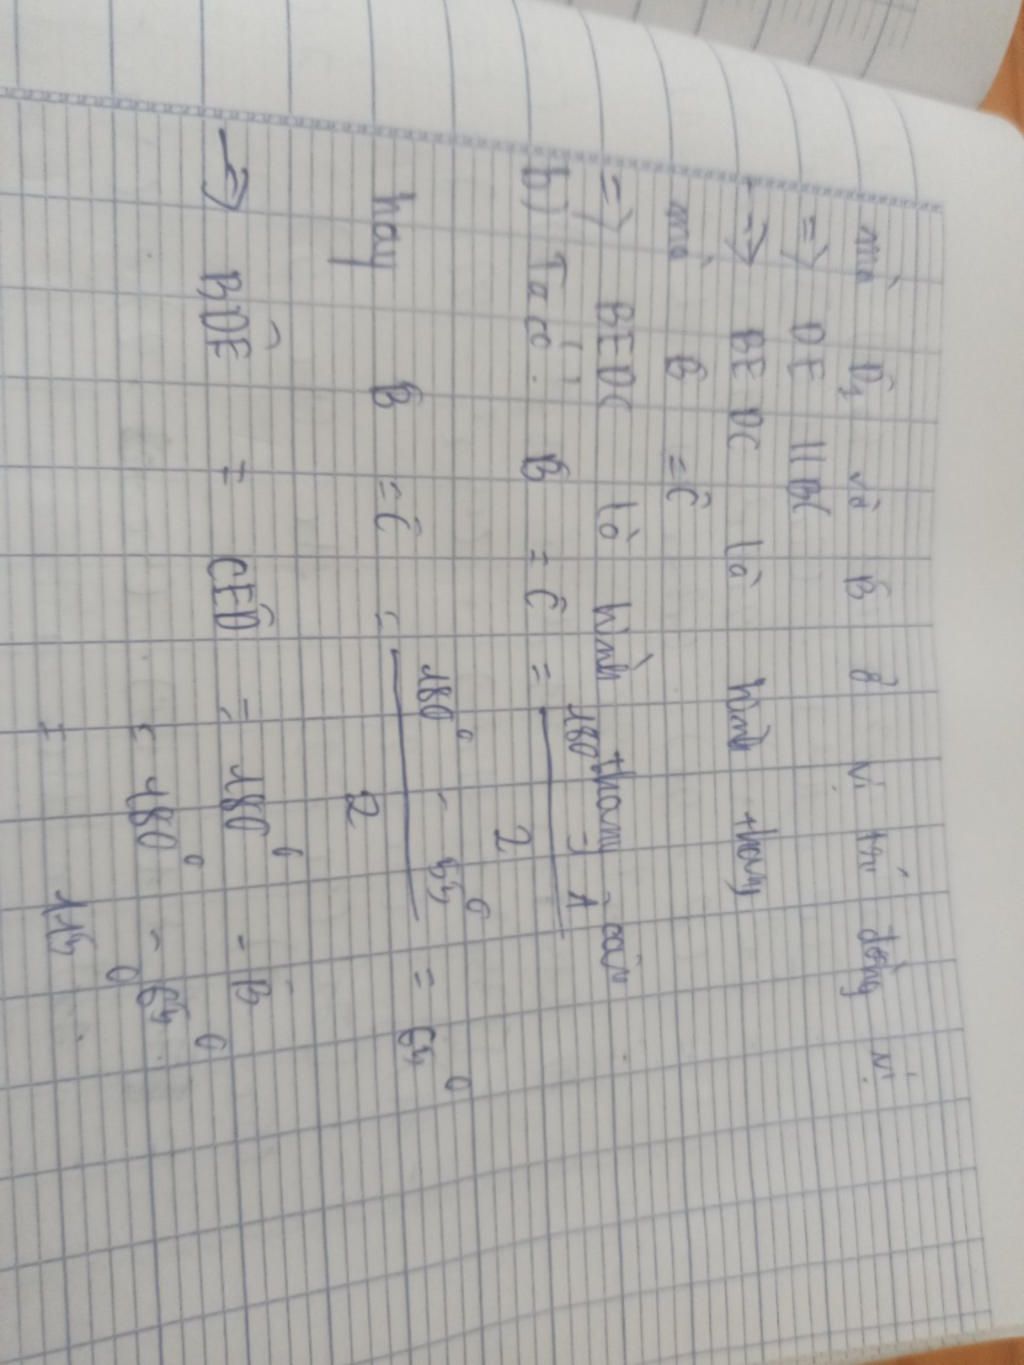 mà D̂₁ và B̂ ở vị trí đồng vị
=> DE // BC
=> BEDC là hình thang
mà B̂ = Ĉ
=> BEDC là hình thang cân
b) Ta có: B̂ = Ĉ = (180° - Â) / 2
hay B̂ = Ĉ = (180° - 50°) / 2 = 65°
=> BDE = CED = 180° - B̂
= 180° - 65°
= 115°